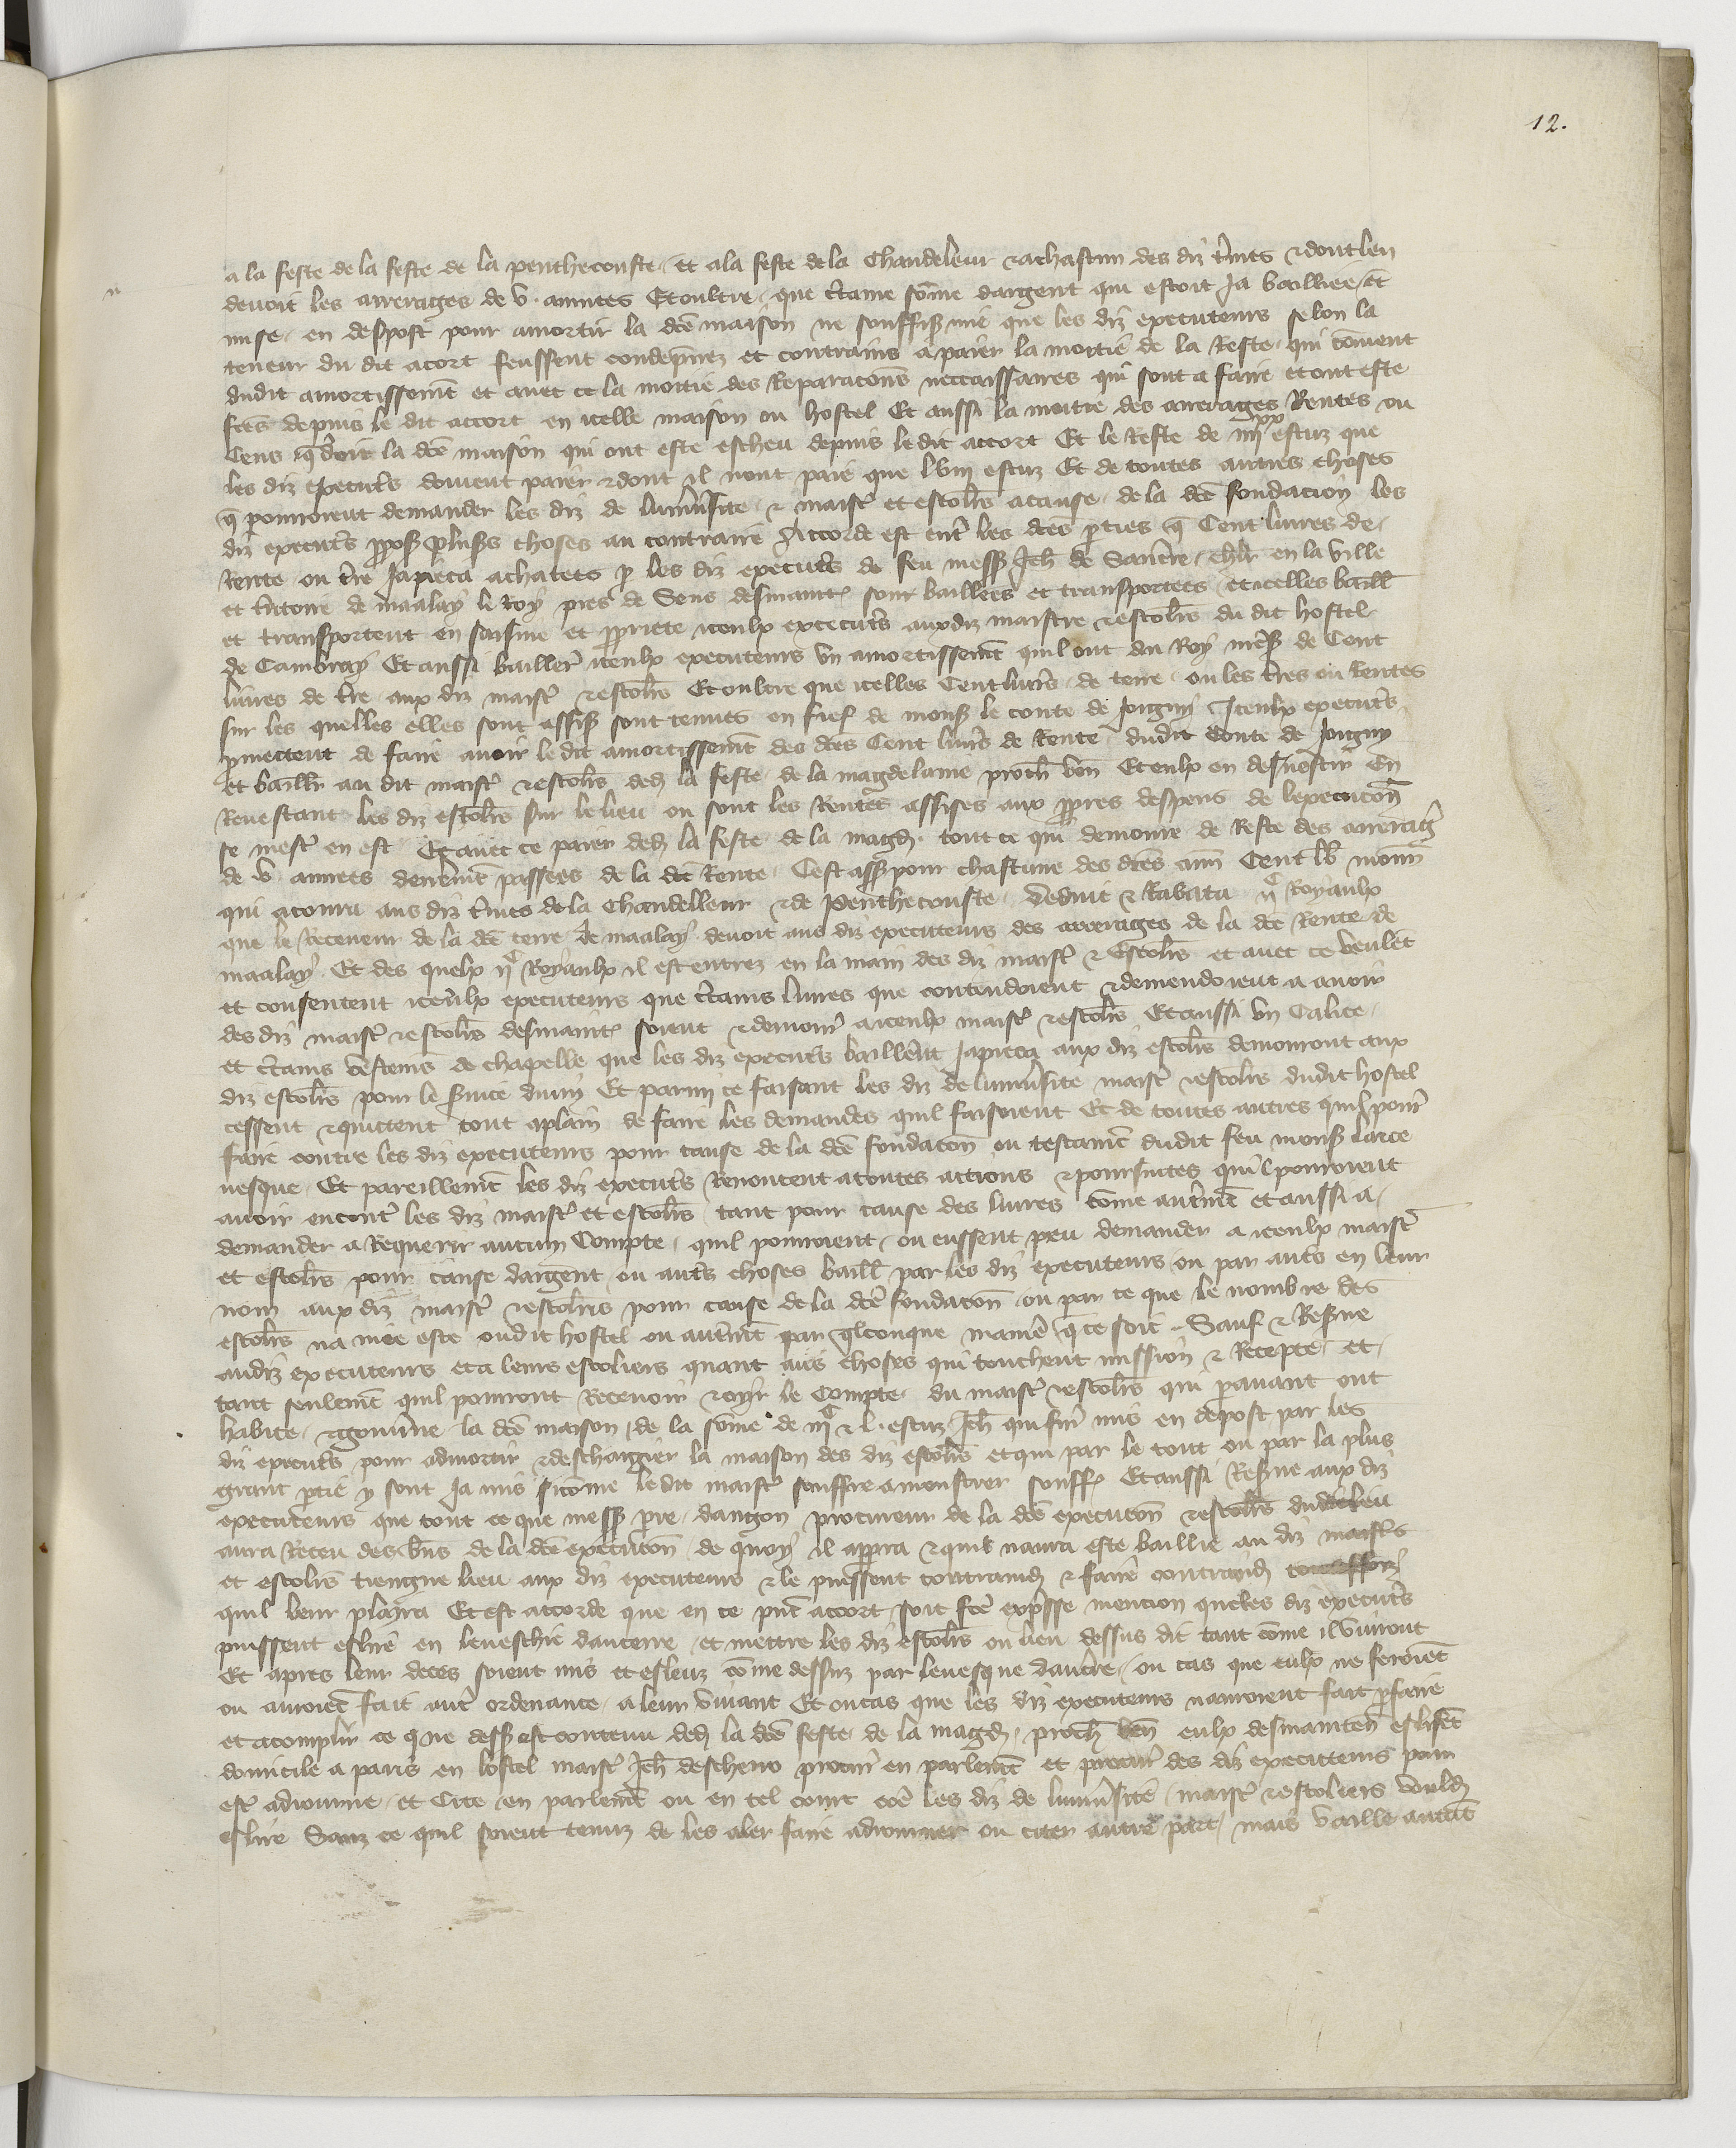 12.
a la feste de la feste de la penthecouste et a la feste de la Chandeleur & a chascun des diz t'mes & dont len
devoit les arrerages de v. annees Et oultre que c'taine some dargent qui estoit Ja bailliee et
mise en despost pour amortir la dce maison ne souffisoit mie que les diz executeurs selon la
teneur du dit acort feussent condepnez et contrains a paier la moitie de la Reste qui convient
dudit amortissemt et avec ce la moitie des Reparacons neccaissaires qui sont a faire et ont este
fces depuis le dit accort en icelle maison ou hostel Et aussi la moitie des arrerages Rentes ou
Cens q doit la dce maison qui ont este escheu depuis le dit accort Et le Reste de iiii xx escuz que
les diz execut's doivent paier & dont il nont paie que lviii escuz Et de toutes autres choses
q pourroient demander les diz de lunivsite & maist' et escoliers a cause de la dce fondacion les
diz execut's pposs plus's choses au contraire Accorde est ent' les dces pties q Cent livres de
Rente ou t're Japieca achatees p les diz execut's de feu mess Jeh de Sanc're chlr en la ville
et t'ritoire de maalay le Roy pres de Sens desmaint' sont baillees et transportees et icelles baill'
et transportent en saisine et ppriete iceulx excecut's aux diz maistre & escoliers du dit hostel
de Cambray Et aussi bailler' iceulx executeurs un amortissemt quil ont du Roy nres' de Cent
livres de t're aux diz maist' & escoliers Et oultre que icelles Cent livres de terre ou les t'res ou Rentes
sur les quelles elles sont assis' sont tenues en fief de mons' le conte de Joigny Iceulx execut's
pmectent de faire avoir le dit amortissemt des dces Cent livres de Rente dudit Conte de Joigny
et baillr au dit maist' & escoliers ded' la feste de la magdelaine proch' ven' Et eulx en desvestir En
Revestant les diz escoliers sur le lieu ou sont les Rentes assises aux ppres despens de lexecucon
se mest' en est Et avec ce paier ded' la feste de la magd' tout ce qui demoure de Reste des arrerag'
de v annees derrenmt passees de la dce Rente Cest ass' pour chascune des dces ann' Cent lb monn'
qui a couru aus diz t'mes de la Chandelleur & de Penthecouste Deduit & Rabatu ii c Royaulx
que le Receveur de la dce terre de maalay devoit aus diz executeurs des arrerages de la dce Rente de
maalay Et des quelx ii c Royaulx il est entrez en la main des diz maist' & Escoliers et avec ce veulent
et consentent iceulx executeurs que c'tains livres que contendoient & demendoient a avoir
des diz maist' & escoliers desmaint' soient & demour' a iceulx maist' & escoliers Et aussi un Calice
et c'tains vestemens de chapelle que les diz execut's baillerent Japieca aux diz escoliers demouront aux
diz escoliers pour le s'vice divin Et parmi ce faisant les diz de lunivsite maist' & escoliers dudit hostel
cessent & quictent tout a plain de faire les demandes quil faisoient Et de toutes autres quil pour'
faire contre les diz executeurs pour cause de la dce fondacon ou testamt dudit feu mons' larce
vesque Et pareillemt les diz execut's Renoncent a toutes actions & poursuites quil pourroient
avoir encont' les diz maist' et escoliers tant pour cause des livres come autremt et aussi a
demander a Requerir aucun Compte quil pourroient ou eussent peu demander a iceulx maist'
et escoliers pour cause dargent ou aut's choses baill' par les diz executeurs ou par aut's en leur
nom aux diz maist' & escoliers pour cause de la dce fondacon ou par ce que le nombre des
escoliers na mie este ou dit hostel ou autremt par qlconque maniere q ce soit Sauf & Res've
au diz executeurs et a leurs escoliers quant aus choses qui touchent mission & Recepte et
tant seulemt quil pourront Recevoir & oyr le Compte du maist' & escoliers qui pavant ont
habite & gouverne la dce maison de la some de iii c & l. escuz Jeh qui fur' mis en depost par les
diz execut's pour admortir & deschargier la maison des diz escoliers et qui par le tout ou par la plus
grant ptie y sont Ja mis sicome le dit maist' souffre a monstrer souff' Et aussi Res've aux diz
executeurs que tout ce que mess' pre dangon procureur de la dce execucon & escoliers dudit lieu
aura Receu des biens de la dce execucon de quoy il apprra & quil naura este baillie au diz maist's
et escoliers tiengne lieu aux diz executeurs & le puissent contraind' & faire contraind'
quil leur plaira Et est accorde que en ce pnt accort soit fce expsse mencion que les diz execut's
puissent eslire en leveschie daucerre et mettre les diz escoliers ou lieu dessus dit tant come il vivront
Et apres leur deces soient mis et esleuz come dessus par levesque daucerre ou cas que eulx ne feroient
ou auroient fait aut' ordenance a leur vivant Et ou cas que les diz executeurs nauroient fait pfaire
et acomplir ce que dess' est contenu ded' la dce feste de la magd' proch' ven' eulx desmainten' eslisent
domicile a paris en lostel maist' Jeh descheno procur' en parlemt et procur' des diz executeurs pour
est' adiourne et Cite en parlemt ou en tel court come les diz de lunivsite maist' & escoliers vould'
eslire Sanz ce quil soient tenuz de les aler faire adiourner ou citer autre part mais vaille autant